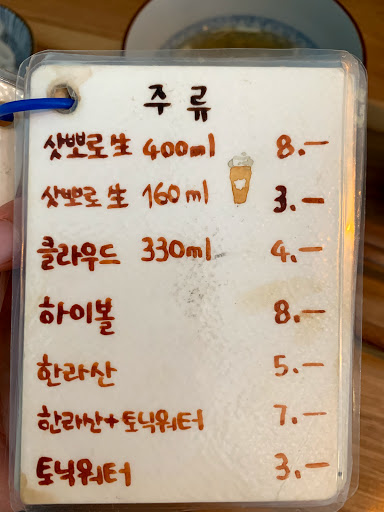 주류
삿뽀로生 400ml 8.-
삿뽀로生 160ml 3.-
클라우드 330ml 4.-
하이볼 8.-
한라산 5.-
한라산+토닉워터 7.-
토닉워터 3.-